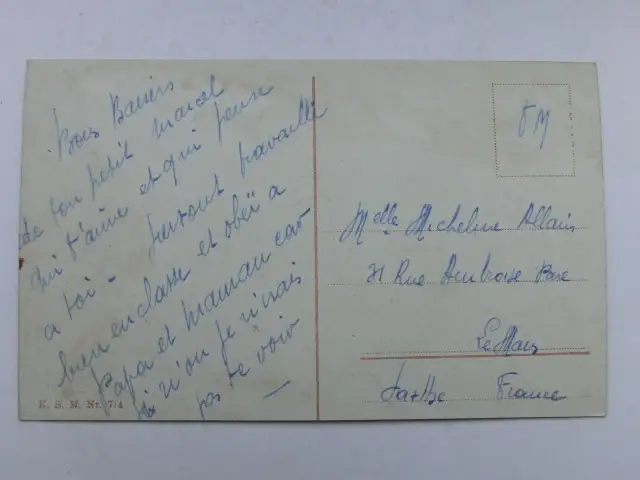 Bons Baisers
de ton petit Marcel
qui t'aime et qui pense
a toi - Surtout travaille
bien en classe et obeï a
papa et maman car
si n'on je n'irais
pas te voir
K. S. M. Nr. 7/4
F M
Melle Micheline Allain
31 Rue Ambroise Pare
Le Mans
Sarthe France